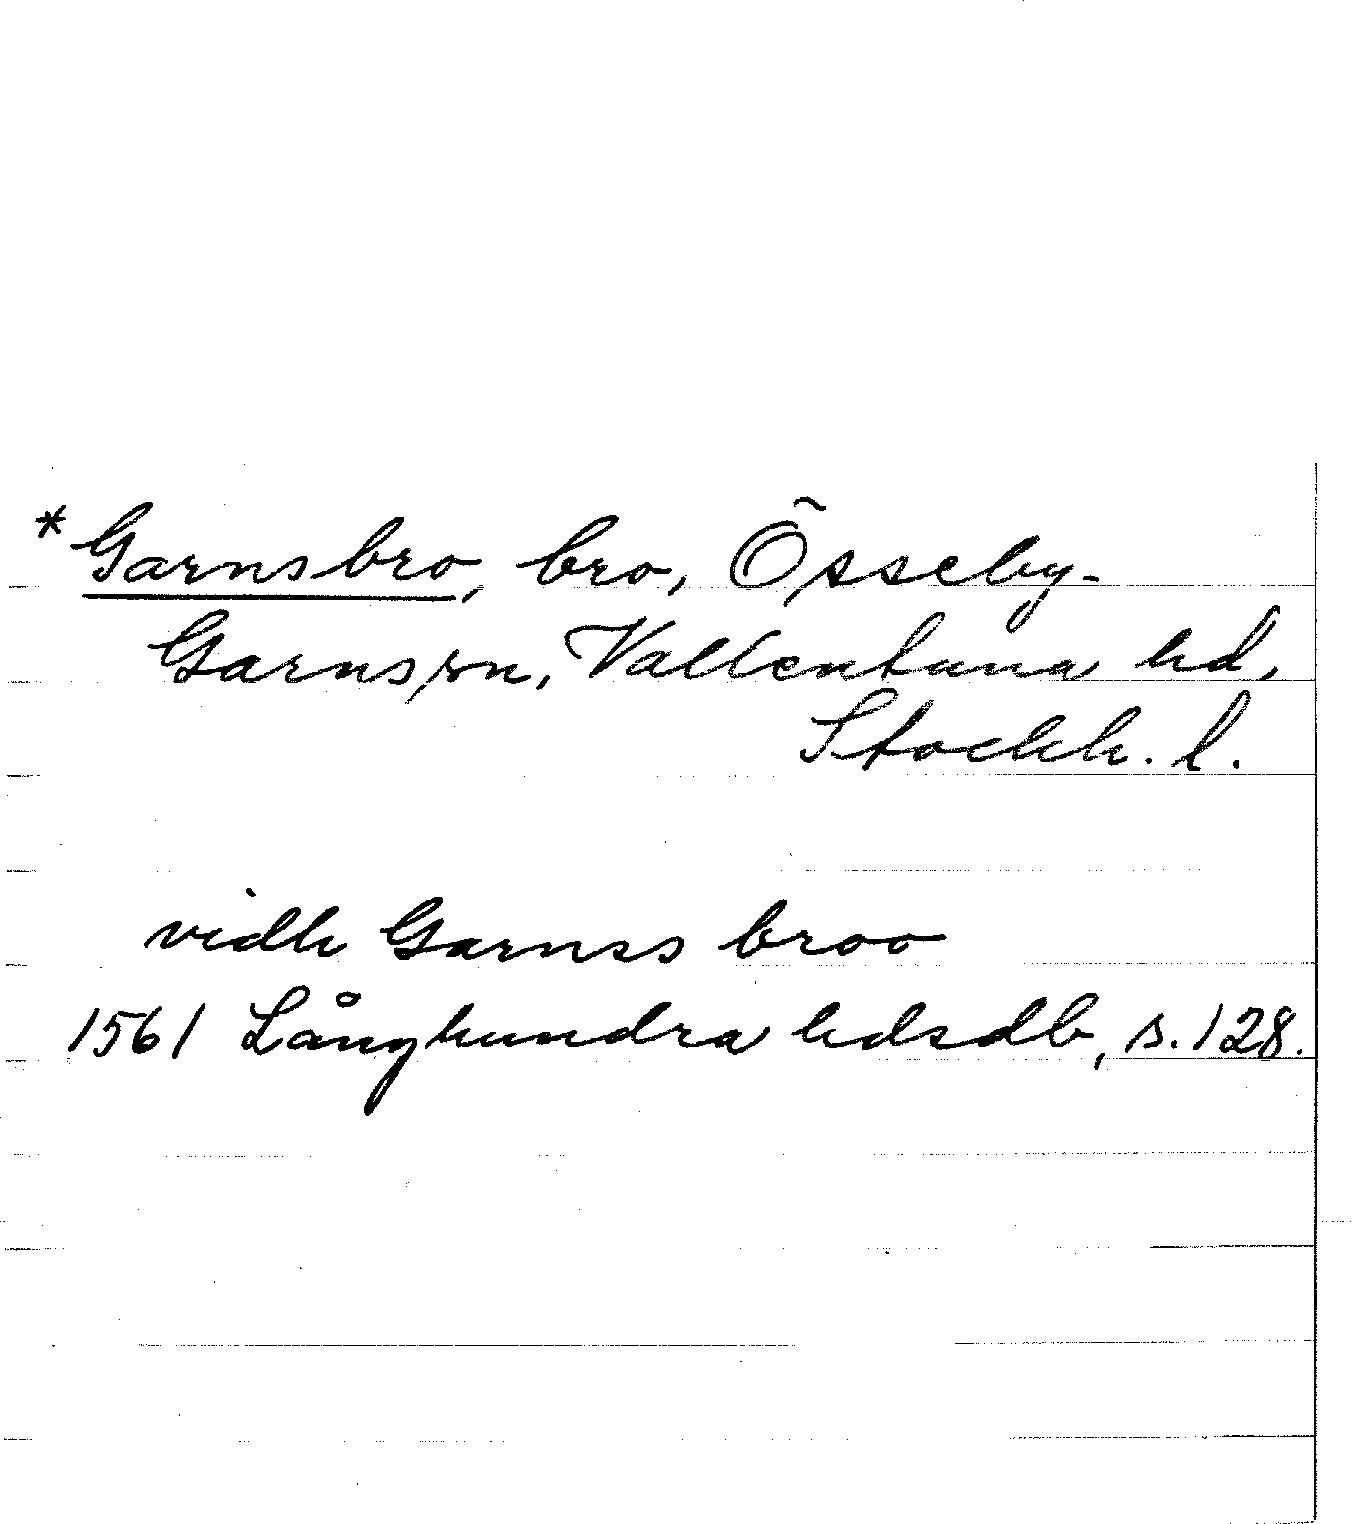 *Garnsbro, bro, Össeby-
Garns sn, Vallentuna hd,
Stockh. l.
vidh Garnss broo
1561 Långhundra hdsdb, s. 128.